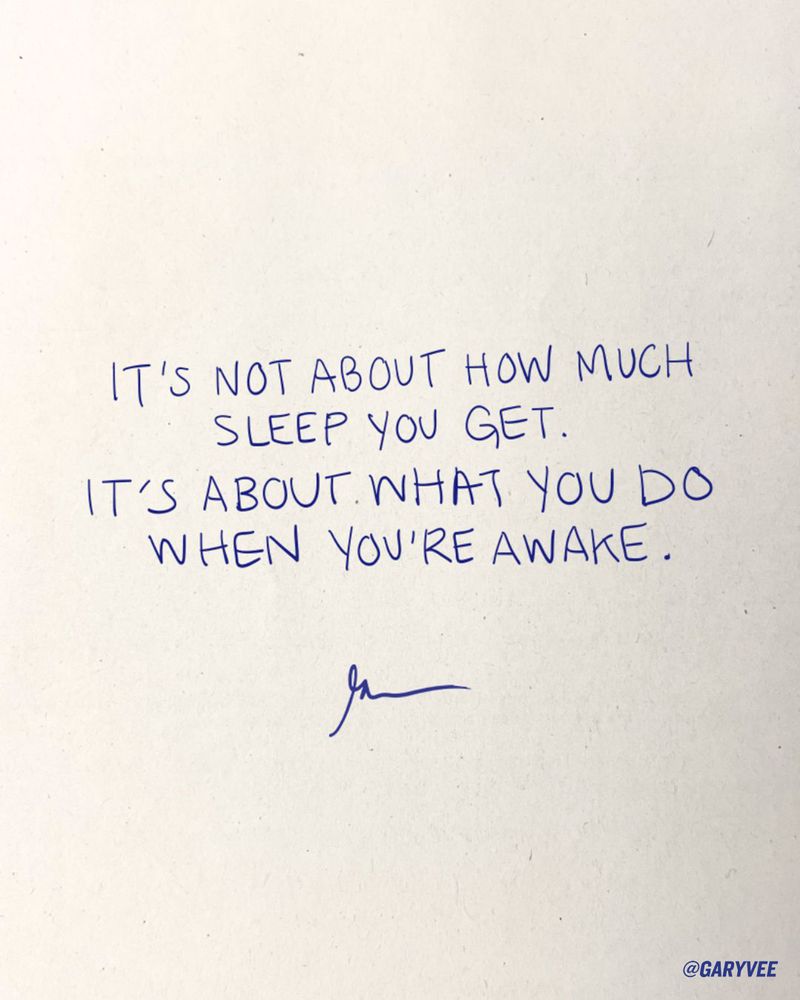 IT'S NOT ABOUT HOW MUCH
SLEEP YOU GET.
IT'S ABOUT WHAT YOU DO
WHEN YOU'RE AWAKE.
@GARYVEE